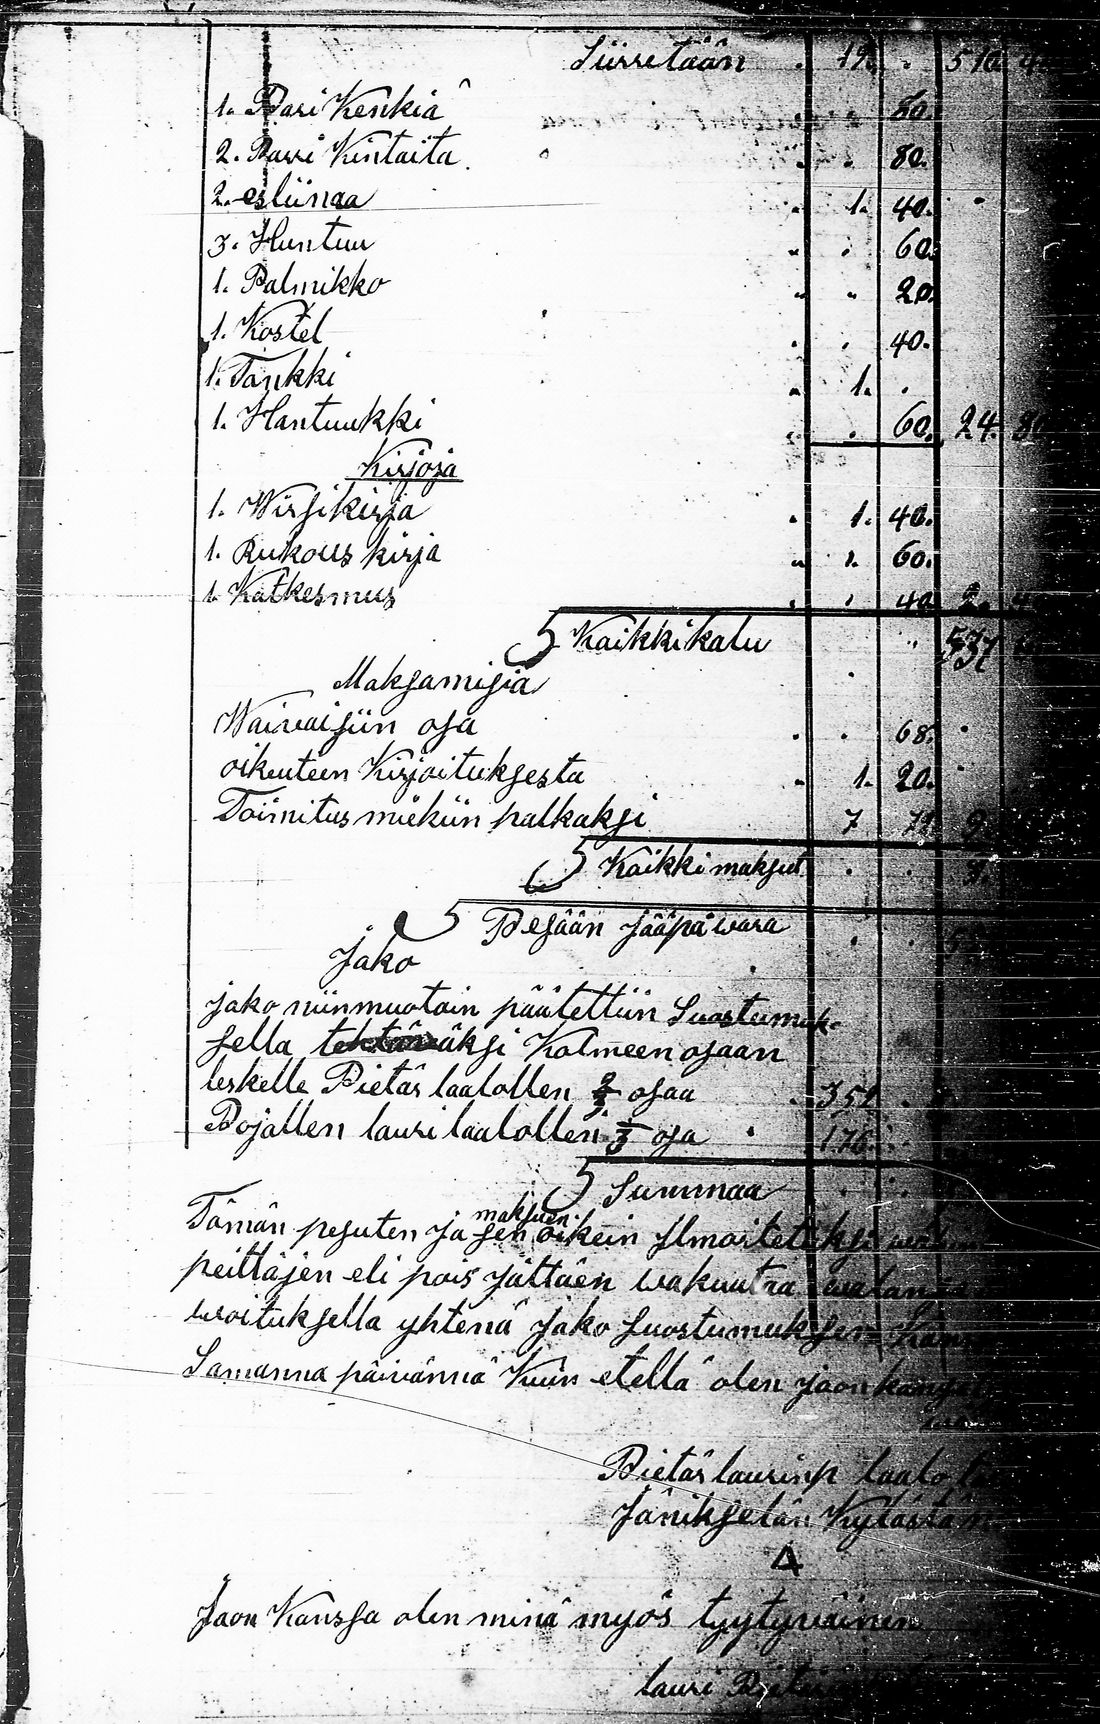 Siirretään . 19. . 510. 4
1. Pari Kenkiä 50.
2. Pari Kintaita . . 80.
2. esliinaa . 1. 40.
3. Huntuu . . 60.
1. Palmikko . . 20.
1. Kostel . . 40.
1. Tankki . 1. .
1. Hantuukki . . 60. 24. 80
Kirjoja
1. Wirsikirja . 1. 40.
1. Rukous kirja . . 60.
1. Katkesmus . . 40. 2. 40
S Kaikki kalu 537
Maksamisia
Waivaisiin osa . . 68.
oikeuteen Kirjoituksesta . 1. 20.
Toimitus miekiin palkaksi 7 72 9
S Kaikki maksut . . 9.
S Pesään jääpä wara . .
Jako
jako niinmuotoin päätettiin Suostumuk-
sella tehtäwäksi Kolmeen osaan
leskelle Pietär laalollen 2/3 osaa . 351
Pojallen lauri laalollen 1/3 osa . 176.
S Summaa
Tämän pesuten ja sen maksuen oikein Ilmoitetuksi
peittäjen eli pois jättäen wakuutaa walan
woituksella yhtenä jako suostumuksen kans
Samanna päivännä Kuin etellä olen jaon
Pietär laurinp laalo
Jänikselän Kylästä
Jaon Kanssa olen minä myös tyytyväinen
lauri